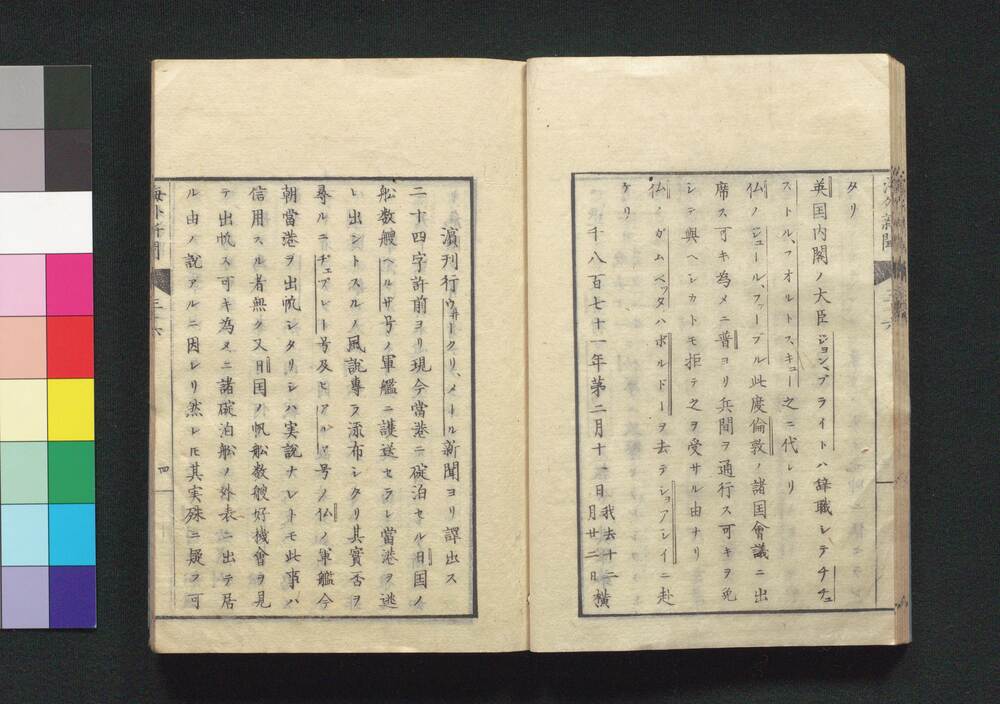 タリ
英国内閣ノ大臣ジョン、ブライトハ辞職シテチチェ
ストル、フオルトスキュー之ニ代レリ
仏ノジュール、ファーブル此度倫敦ノ諸国會議ニ出
席ス可キ為メニ普ヨリ兵間ヲ通行ス可キヲ免
シテ與ヘシカトモ拒テ之ヲ受サル由ナリ
仏ノガムベッタハボルドーヲ去テショアンレイニ赴
ケリ
一千八百七十一年第二月十一日我去十二月廿二日横
濵刊行ウ井ークリ、メール新聞ヨリ譯出ス
二十四字許前ヨリ現今當港ニ碇泊セル日国ノ
舩数艘ヘルザ号ノ軍艦ニ護送セラレ當港ヲ逃
レ出ントスルノ風説專ラ流布シタリ其實否ヲ
尋ルニヂュプレー号及ヒアルマ号ノ仏ノ軍艦今
朝當港ヲ出帆シタリシハ実説ナレトモ此事ハ
信用スル者無ク又日国ノ帆舩数艘好機會ヲ見
テ出帆ス可キ為メニ諸碇泊舩ノ外表ニ出テ居
ル由ノ説アルニ因レリ然レ𪜈其実殊ニ疑フ可
海外新聞
三十六
四